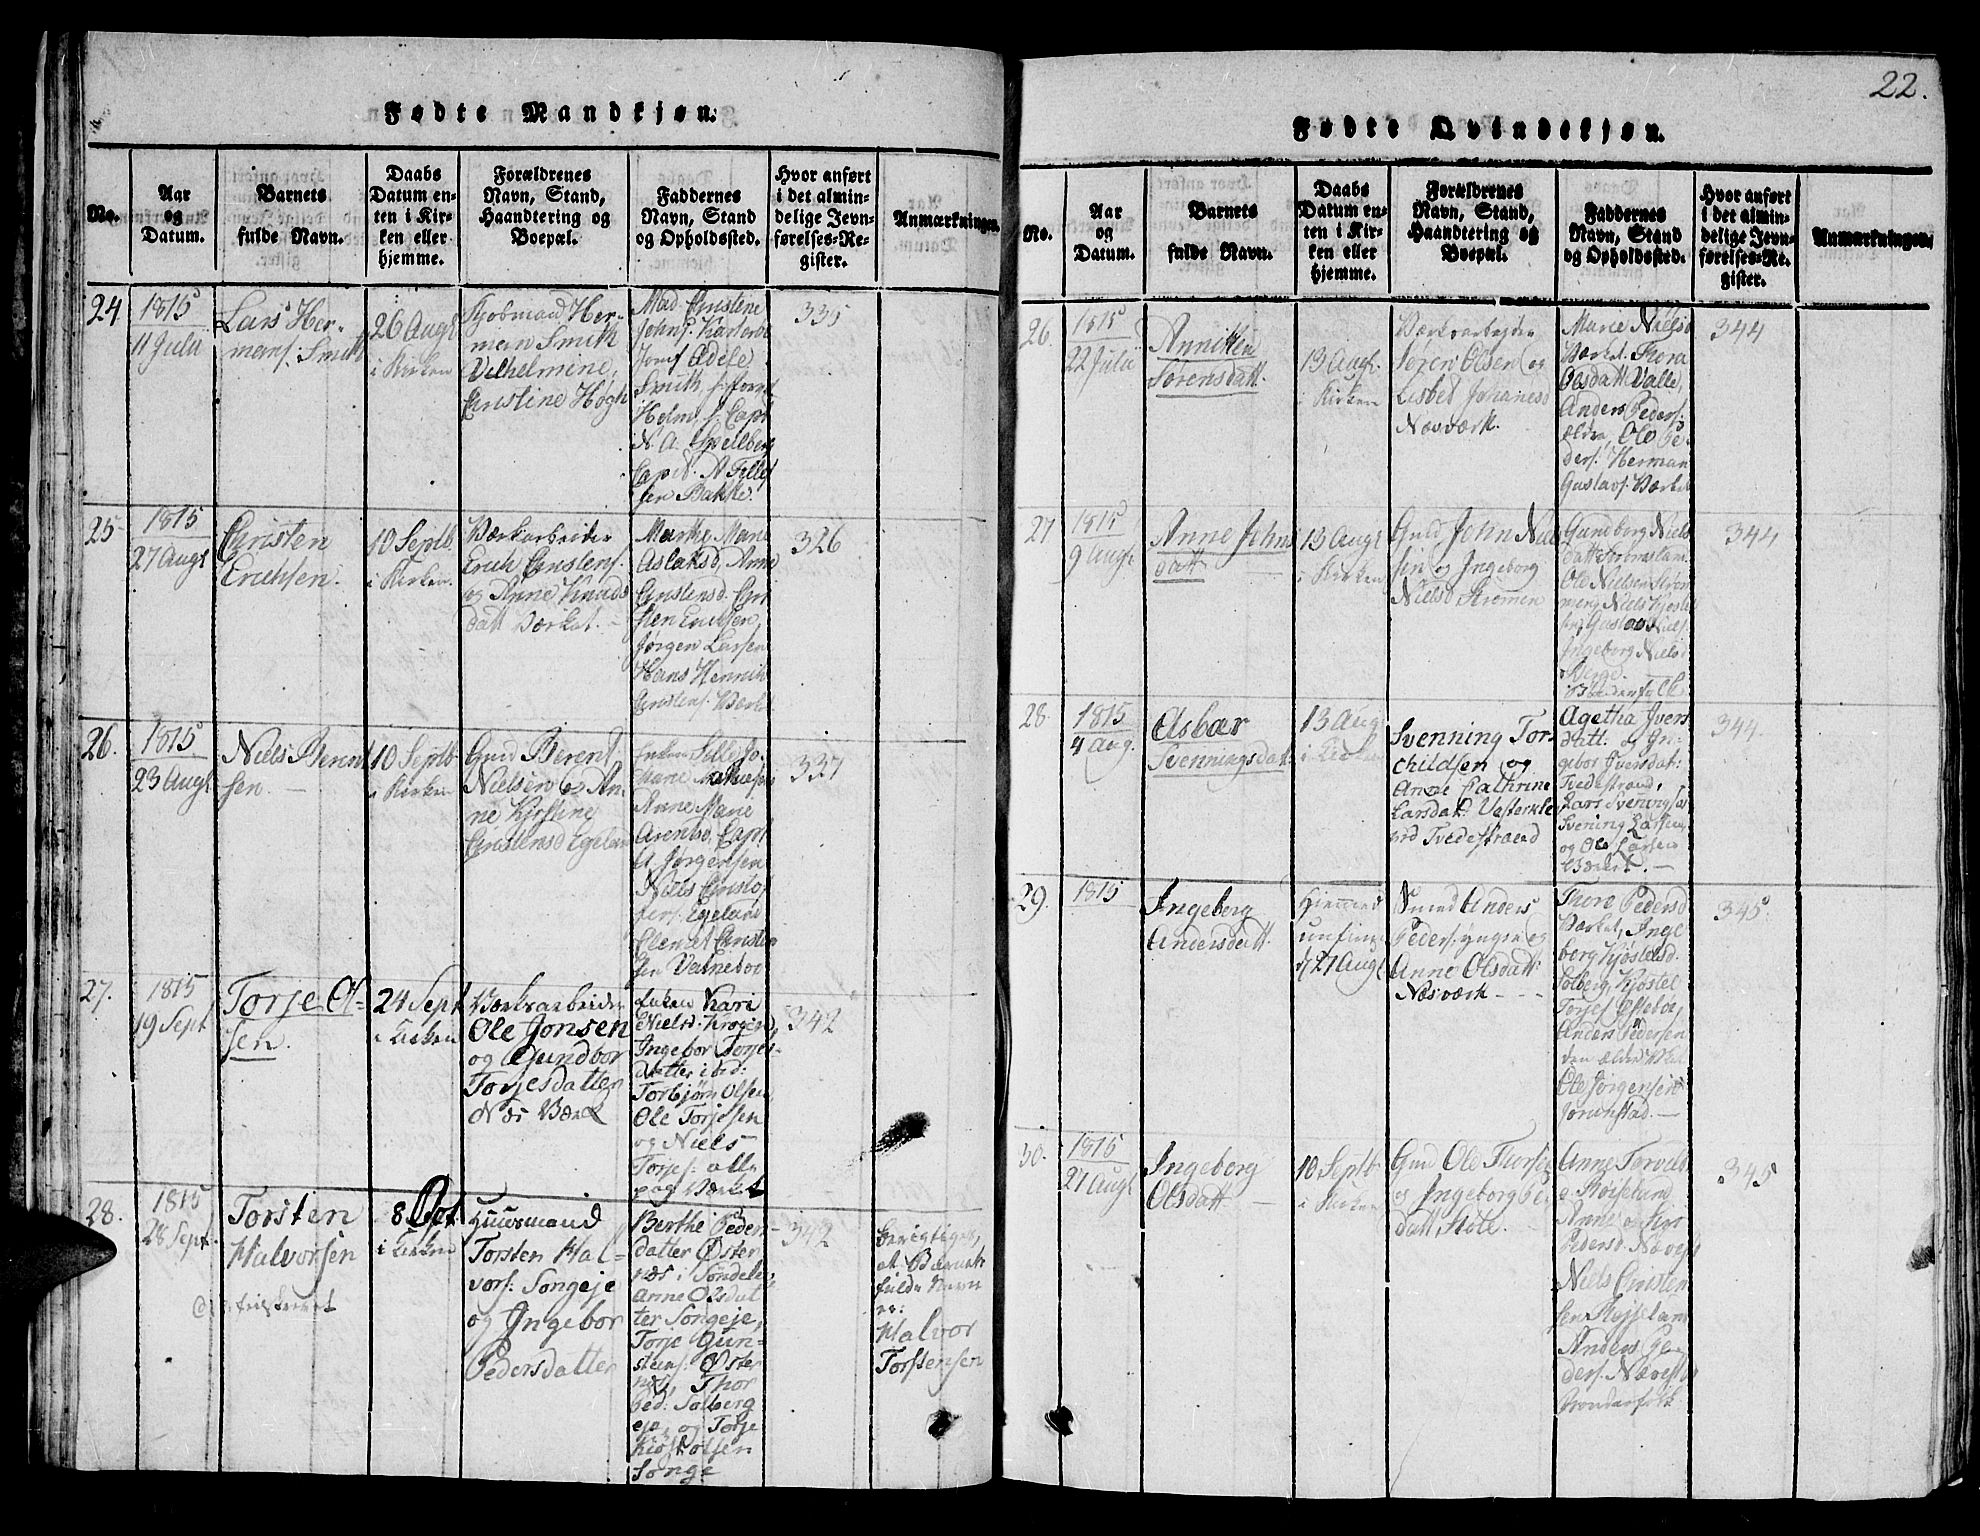 22.
Fødte Mandkjøn.
No.
Aar
og
Datum.
Barnets
fulde Navn.
Daabs
Datum en-
ten i Kir-
ken eller
hjemme.
Forældrenes
Navn, Stand,
Haandtering og
Boepæl.
Faddernes
Navn, Stand
og Opholdssted.
Hvor anført
i det almin-
delige Jevn-
førelses-Re-
gister.
Anmærkninger.
24
1815
11 Julii
Lars Her-
mans. Smith
26 Augt
i Kirken
Kjøbmand Her-
man Smith
Vilhelmine,
Christine Høgh
Mad. Christine
Adele
Smith
Holm
Capt
N. A.
Capit. A
sen Bakke.
335
25
1815
27 Augt
Christen
Erichsen.
10 Septb.
i Kirken
Værkarbeider
Erich Christens.
og Anne Knuds
datt Værket.
Marthe Marie
Aslaksd, Anne
Christensd. Chri
sten Erichsen,
Jørgen Larsen
Hans Henrich
Christens. Værket
326
26.
1815
23 Augt
Niels Berent
sen.
10 Septb
i Kirken
Gmd Berent
Nielsen og An
ne Kjirstine
Christensd Egeland
Anne Marie
Arentsd, Capt
A Jørgensen
Niels Christof
fers. Egeland
Clemet Christen
sen Valneboe
337
27.
1815
19 Sept
Torje Ol-
sen.
24 Sept
i Kirken
Værksarbeider
Ole Jonsen
og Gundbor
Torjesdatter
Næs Værk
Enken Kari
Nielsd. Krogen,
Ingebor Torjes-
datter ibd:
Torbjørn Olsen,
Ole Torjesen
og Niels
Torjes: alle
paa Værket
342
28.
1815
28 Sept.
Torsten
Halvorsen
8 Oct.
i Kirken
Huusmand
Torsten Hal-
vors: Songeje
og Ingebor
Pedersdatter
Berthe Peders
datter Øster
næs i Søndeled,
anne Olsdat
ter Songeje,
Torje Gun-
steins. Øster
næs, Thor
Ped: Solberg
eje, og Torje
Kiøstolsen
Songe
342
berigtiget,
at Barnets
fulde Navn
er:
Halvor
Torstensen
Fødte Qvindekjøn.
No.
Aar
og
Datum.
Barnets
fulde Navn.
Daabs
Datum en-
ten i Kir-
ken eller
hjemme.
Forældrenes
Navn, Stand,
Haandtering og
Boepæl.
Faddernes
Navn, Stand
og Opholdssted.
Hvor anført
i det almin-
delige Jevn-
førelses-Re-
gister.
Anmærkninger.
26.
1815
22 Julii
Annitten
Sørensdatt.
13 Augt.
i Kirken
Værksarbejder
Søren Olsen og
Lisbet Johanesd
Næsværk.
Marie Nielsd
Værket. Thora
Olsdatt Valle,
Anders Peders.
ældre, Ole Pe
ders. Herman
Gustavs. Værket
344
27
1815
9 Augt
Anne Johns
datt
13 Augt
i Kirken
Gmd John Niel
sen og Ingeborg
Nielsd Strømen
Gundborg Niels
datt
Ole Nielsen
Niels Kjøstel
sen, Gustav Niels.
Ingeborg Nielsd
Berge.
Bondenfolk
344
28.
1815
4 Aug.
Asbær
Svenningsdatt.
13 Aug
i Kirken
Svenning Tors
childsen og
Anne Cathrine
Larsdat: Vesterkle
ved Tvedestrand
Agetha Ivers
datt. og In-
gebor Iversdat:
Tvedestrand,
Lars Svenningsen
Svening Larsen
og Ole Larsen
Værket. —
344
29.
1815
Ingeborg
Andersdatt.
Hiemmed
d 27 Augt
Smed Anders
Peders. yngre og
Anne Olsdatt:
Næsværk - - -
Thore Pedersd
Værket, Inge
borg Kjøstelsd.
Solberg, Kjøstel
Torjes
Anders Pedersen
den ældre
Ole Jørgensen
345
30.
1815
27 Augt
Ingeborg
Olsdatt —
10 Septb
i Kirken
Gmd Ole Thorsen
og Ingeborg Pe
datt Stole.
Anne Torvels
Anne
Pedersd. Næves
Niels Christen
sen
Anders Pe
ders. Næves
Bondenfolk
345